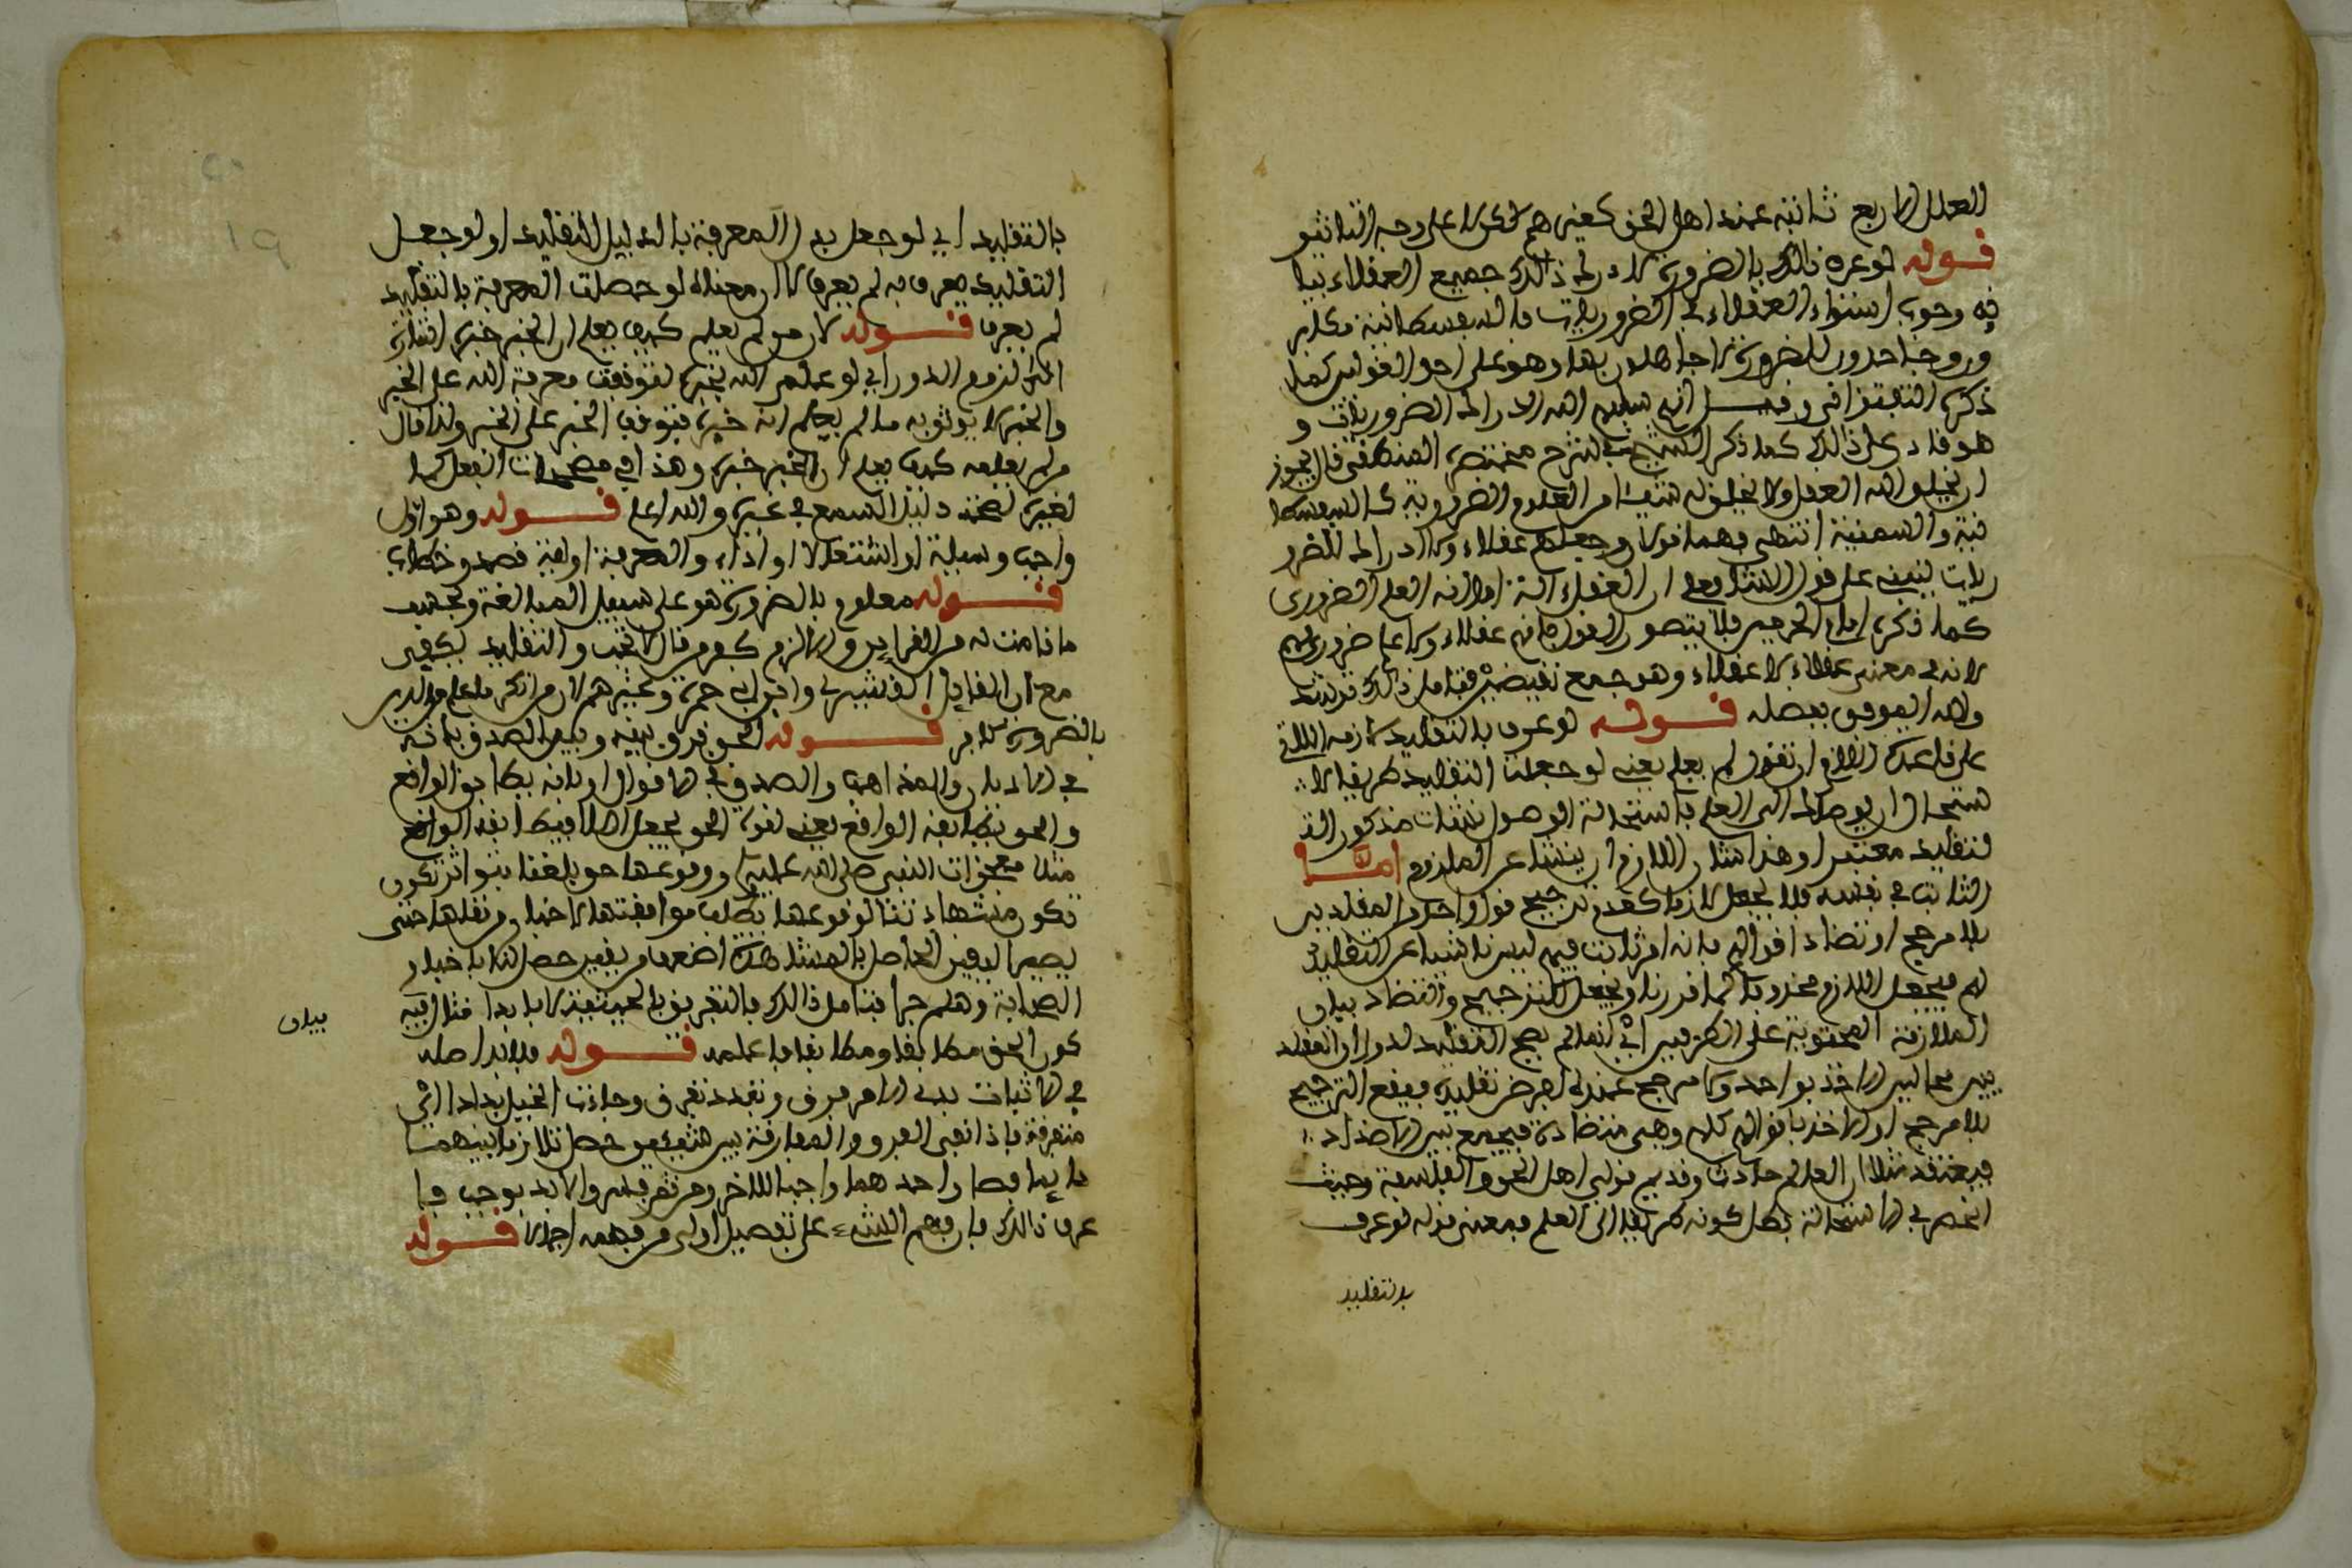 العلل الاربع ثانية عند اهل الحق كغيرهم لكن لا على وجه التاثير
قوله لو عرف ذلك بالضرورة لادرك ذلك جميع العقلاء بيا
فيه وجوب استواء العقلاء في الضروريات فالسفسطائية مكابر
ون وجاحدون للضرورة لا جاهلون بها وهو على احد القولين كما
ذكره التفتزاني وقيل انهم سلبهم الله ادراك الضروريات و
هو قادر على ذلك كما ذكر الشيخ في شرح مختصره المنطقي قال يجوز
ان يخلق الله العقل ولا يخلق له شيئا من العلوم الضرورية كالسفسطا
ئية والسمنية انتهى فهما قولان وجعلهم عقلاء ولا ادراك للضرو
ريات ينبني على قول الشيخ ان العقل الة اما انه العلم الضروري
كما ذكره امام الحرمين فلا يتصور القول بانهم عقلاء ولا علم ضروري لهم
لانه في معنى عقلاء لا عقلاء وهو جمع نقيضين فتامل ذلك ترشد
والله الموفق بفضله قوله لو عرف بالتقليد لازمه اللائق
على قاعدة اللازم ان تقول لم يعلم يعني لو جعلت التقليد طريقا لا
ستحال ان يوصلك الى العلم باستحالة الوصول نشات من كون الت
لتقليد معتبرا وهذا شان اللازم ان ينشا عن الملزوم اما
الثابت في نفسه فلا يجعل لازما كعدم ترجيح قول واحد من المقلدين
بلا مرجح او تضاد اقوالهم بانه امر ثابت فيهم ليس ناشيا عن التقليد
لهم فيجعل اللازم محذوفا كما قررنا ويجعل الترجيح والتضاد بيان
الملازمة المحتوية على الطرفين اي انما لم يصح التقليد لذلك لان المقلد
بين محالين الاخذ بواحد ولا مرجح عنده لغرض تقليده فيقع الترجيح
بلا مرجح او الاخذ باقوالهم كلهم وهي متضادة فيجمع بين الاضداد
فيعتقد مثلا ان العالم حادث وقديم قولي اهل الحق والفلاسفة وحيث
انحصر في الاستحالة بطل كونه طريقا الى العلم فمعنى قوله لو عرف
بالتقليد
بالتقليد اي لو جعل بدل المعرفة بالدليل التقليد او لو جعل
التقليد يعرف به لم يعرف لان معناه لو حصلت المعرفة بالتقليد
لم يعرف قوله لان من لم يعلم كيف يعلم ان الخبر خبره اشارة
الى لزوم الدور اي لو علم الله بخبره لتوقفت معرفة الله على الخبر
والخبر لا يوثق به ما لم يعلم انه خبره فتوقف الخبر على الخبر ولذا قال
من لم يعلمه كيف يعلم ان الخبر خبره وهذا في الفعل كما
لغيره لصحة دليل السمع في غيره والله اعلم قوله وهو اول
واجب وسيلة او اشتغالا او اداء والمعرفة اولية قصد وخطاب
قوله معلوم بالضرورة هو على سبيل المبالغة وبحسب
ما قامت له من القراين والالزم كفر من قال لا تجب والتقليد يكفي
مع ان القايل القشيري وابن ابي جمرة وغيرهم لان من انكر ما علم من الدين
بالضرورة كافر قوله الحق فرق بينه وبين الصدق بانه
في الاديان والمذاهب والصدق في الاقوال او بانه يطابق الواقع
والحق يطابقه الواقع يعني لقوة الحق يجعل اصلا فيطابقه الواقع
مثلا معجزات النبي صلى الله عليه ووقوعها حق بلغنا بتواتر تكون
تكون مشهادتنا لوقوعها يطلب موافقتها لاخبار من نقلها حتى
يصير اليقين الحاصل بالمشاهدة اضعف من يقين حصل لنا باخبار
الصحابة وهلم جرا فتامل ذلك فالتفريق بالحيثية لا بالذات مثال فيه
بيان
كون الحق مطابقا ومطابقا باعلمه قوله فلابد اصله
في الاثبات بد الامر فرق وتبدد تفرق وجاءت الخيل بداد اي
متفرقة فاذا نفي التفرق والمفارقة بين شيئين حصل تلازم بينهما
دايما فصار احدهما واجبا للاخر ومن ثم فسروا لابد بوجب فا
عرف ذلك فان فهم الشيء على تفصيل اولى من فهمه اجمالا قوله